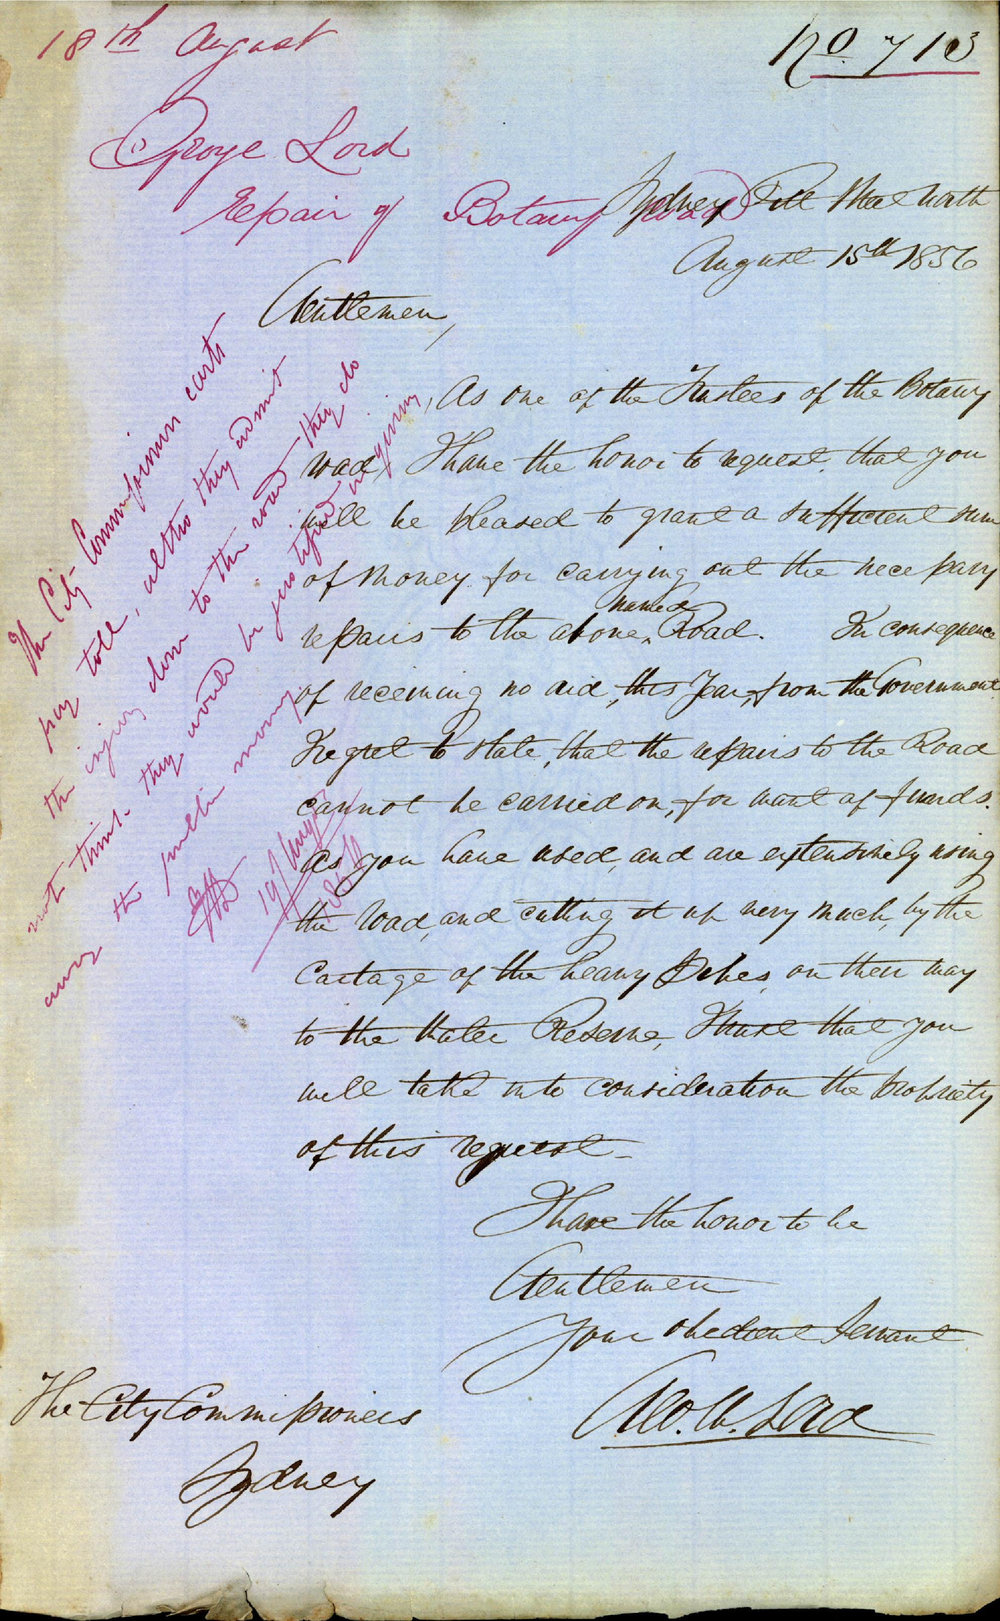 18th August
No. 713
George Lord
Repair of Botany road
Sydney Pitt Street North
August 15th 1856
Gentlemen,
As one of the Trustees of the Botany
road, I have the honor to request, that you
will be pleased to grant a sufficient sum
of Money for carrying out the necessary
repairs to the above named Road. In consequence
of receiving no aid, this Year, from the Government
I regret to state, that the repairs to the Road
cannot be carried on, for want of funds.
As you have used, and are extensively using
the road, and cutting it up very much, by the
Cartage of the heavy Pipes, on their way
to the Water Reserve, I trust that you
will take into consideration the propriety
of this request_
I have the honor to be
Gentlemen
Your obedient Servant
Geo. W. Lord
The City Commissioners
Sydney
The City Commissioners carts
pay toll, altho they admit
the injury done to the road they do
not think they would be justified in giving
away the public money
19 August